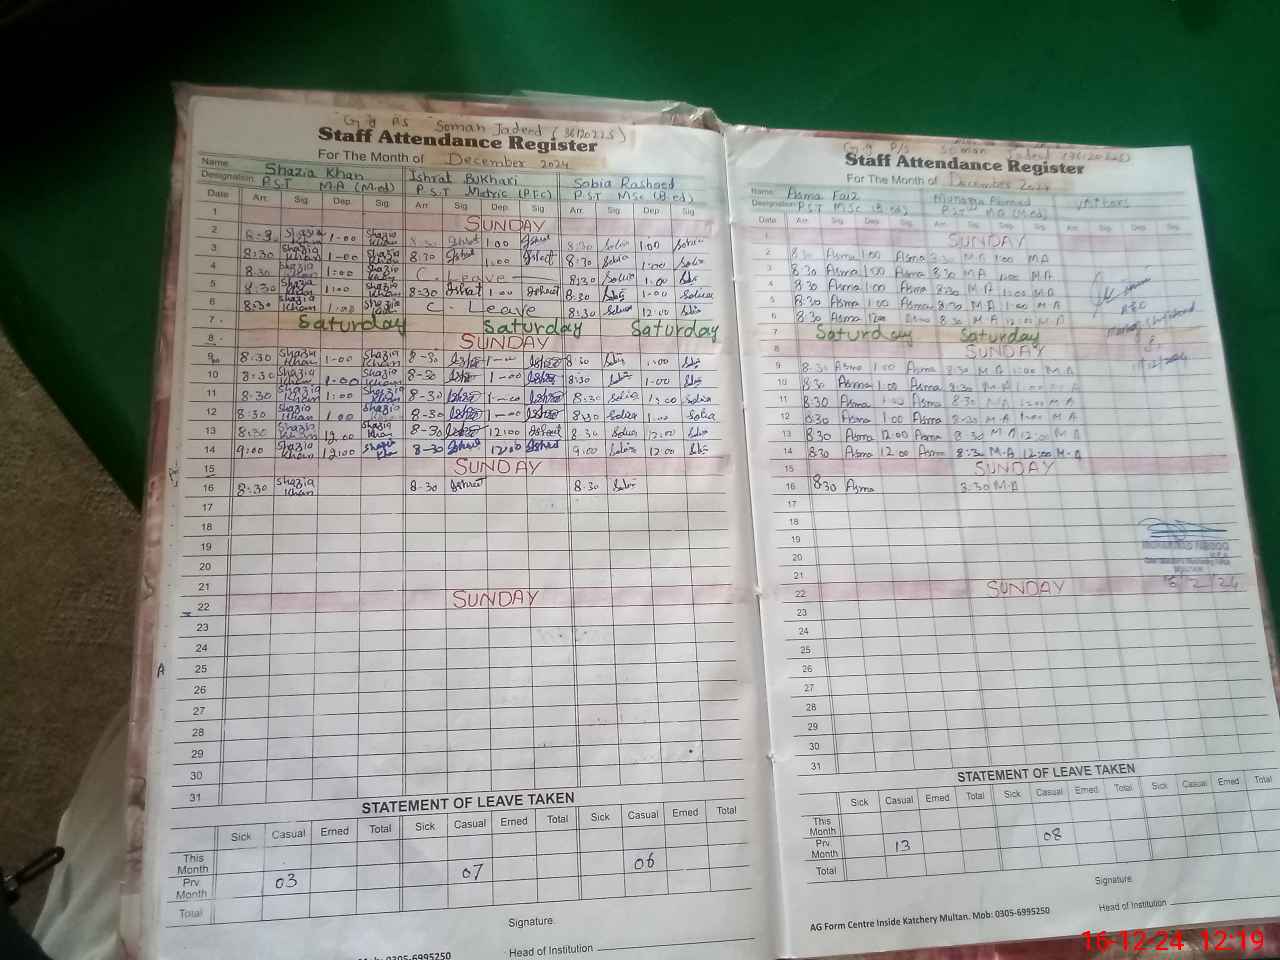 G.g P/S Soman Jadeed (36120225)
Staff Attendance Register
For The Month of December 2024
Name Shazia Khan Ishrat Bukhari Sobia Rasheed
Designation P.S.T M.A (M.ed) P.S.T Metric (P.T.C) P.S.T MSc (B.ed)
Date Arr. Sig. Dep. Sig. Arr. Sig. Dep. Sig. Arr. Sig. Dep. Sig.
1 SUNDAY
2 8-30 Shazia Khan 1-00 Shazia Khan 8-30 Ishrat 1:00 Ishrat 8:30 Sobia 1:00 Sobia
3 8:30 Shazia Khan 1:00 Shazia Khan 8:30 Ishrat 1:00 Ishrat 8:30 Sobia 1-00 Sobia
4 8:30 Shazia Khan 1:00 Shazia Khan C. Leave 8:30 Sobia 1:00 Sobia
5 8:30 Shazia Khan 1:00 Shazia Khan 8-30 Ishrat 1-00 Ishrat 8:30 Sobia 1-00 Sobia
6 8:30 Shazia Khan 1:00 Shazia Khan C. Leave 8:30 Sobia 12:00 Sobia
7 Saturday Saturday Saturday
8 SUNDAY
9 8:30 Shazia Khan 1-00 Shazia Khan 8-30 1-00 8:30 Sobia 1:00 Sobia
10 8:30 Shazia Khan 1:00 Shazia Khan 8-30 1-00 8:30 Sobia 1-00 Sobia
11 8:30 Shazia Khan 1:00 Shazia Khan 8-30 1-00 8:30 Sobia 1:00 Sobia
12 8:30 Shazia Khan 1:00 Shazia Khan 8-30 1-00 8:30 Sobia 1:00 Sobia
13 8:30 Shazia Khan 12:00 Shazia Khan 8-30 12:00 Ishrat 8:30 Sobia 12:00 Sobia
14 9:00 Shazia Khan 12:00 Shazia Khan 8-30 Ishrat 12:00 Ishrat 9:00 Sobia 12:00 Sobia
15 SUNDAY
16 8:30 Shazia Khan 8:30 Ishrat 8:30 Sobia
17
18
19
20
21
22 SUNDAY
23
24
25
26
27
28
29
30
31
A
STATEMENT OF LEAVE TAKEN
Sick Casual Erned Total Sick Casual Erned Total Sick Casual Erned Total
This Month
Prv. Month 03 07 06
Total
Signature.
Head of Institution
0305-6995250
G.g P/S Soman Jadeed (36120225)
Staff Attendance Register
For The Month of December 2024
Name Asma Faiz Visitors
Designation P.S.T MSc (B.ed) P.S.T MA (M.ed)
Date Arr. Sig. Dep. Sig. Arr. Sig. Dep. Sig. Arr. Sig. Dep. Sig.
1 SUNDAY
2 8:30 Asma 1:00 Asma 8:30 M.A 1:00 M.A
3 8:30 Asma 1:00 Asma 8:30 M.A 1:00 M.A
4 8:30 Asma 1:00 Asma 8:30 M.A 1:00 M.A
5 8:30 Asma 1:00 Asma 8:30 M.A 1:00 M.A
6 8:30 Asma 12:00 Asma 8:30 M.A 12:00 M.A
7 Saturday Saturday
8 SUNDAY
9 8:30 Asma 1:00 Asma 8:30 M.A 1:00 M.A
10 8:30 Asma 1:00 Asma 8:30 M.A 1:00 M.A
11 8:30 Asma 1:00 Asma 8:30 M.A 1:00 M.A
12 8:30 Asma 1:00 Asma 8:30 M.A 1:00 M.A
13 8:30 Asma 12:00 Asma 8:30 M.A 12:00 M.A
14 8:30 Asma 12:00 Asma 8:30 M.A 12:00 M.A
15 SUNDAY
16 8:30 Asma 8:30 M.A
17
18
19
20
21
22 SUNDAY
23
24
25
26
27
28
29
30
31
STATEMENT OF LEAVE TAKEN
Sick Casual Erned Total Sick Casual Erned Total Sick Casual Erned Total
This Month
Prv. Month 13 08
Total
Signature.
AG Form Centre Inside Katchery Multan. Mob: 0305-6995250
Head of Institution
16-12-24 12:19